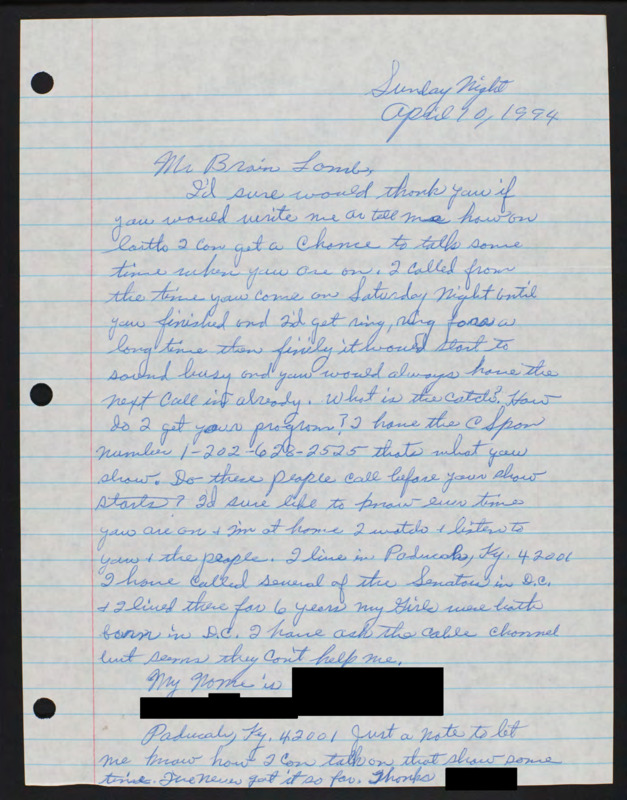 Sunday Night
April 10, 1994
Mr Brain Lamb,
I'd sure would thank you if
you would write me or tell me how on
earth I can get a chance to talk some
time when you are on. I called from
the time you come on Saturday Night until
you finished and I'd get ring, ring for a
long time then finely it would start to
sound busy and you would always have the
next call in already. What is the catch? How
do I get your program? I have the C Span
number 1-202-628-2525 thats what you
show. Do these people call before your show
starts? I'd sure like to know ever time
you are on + I'm at home I watch + listen to
you + the people. I live in Paducah, Ky. 42001
I have called several of the Senators in D.C.
+ I lived there for 6 years my Girls were both
born in D.C. I have ask the cable channel
but seems they can't help me.
My Name is
Paducah, Ky. 42001 Just a note to let
me know how I can talk on that show some
time. I've never got it so far. Thanks